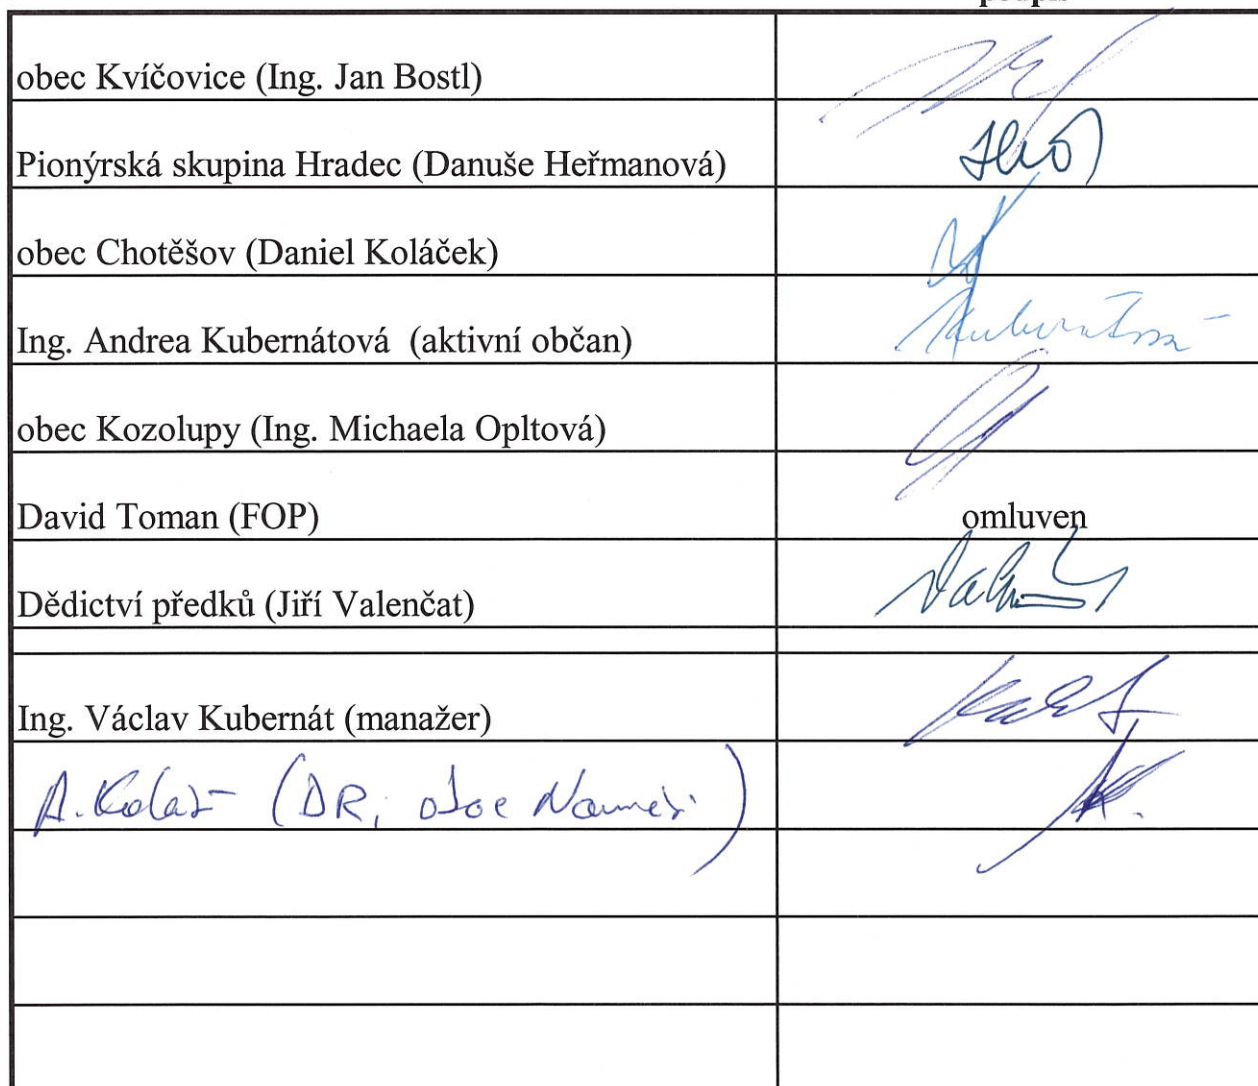 podpis
obec Kvíčovice (Ing. Jan Bostl)
Pionýrská skupina Hradec (Danuše Heřmanová)
obec Chotěšov (Daniel Koláček)
Ing. Andrea Kubernátová (aktivní občan)
Kubernátová
obec Kozolupy (Ing. Michaela Opltová)
David Toman (FOP) omluven
Dědictví předků (Jiří Valenčat)
Ing. Václav Kubernát (manažer)
A. (DR,